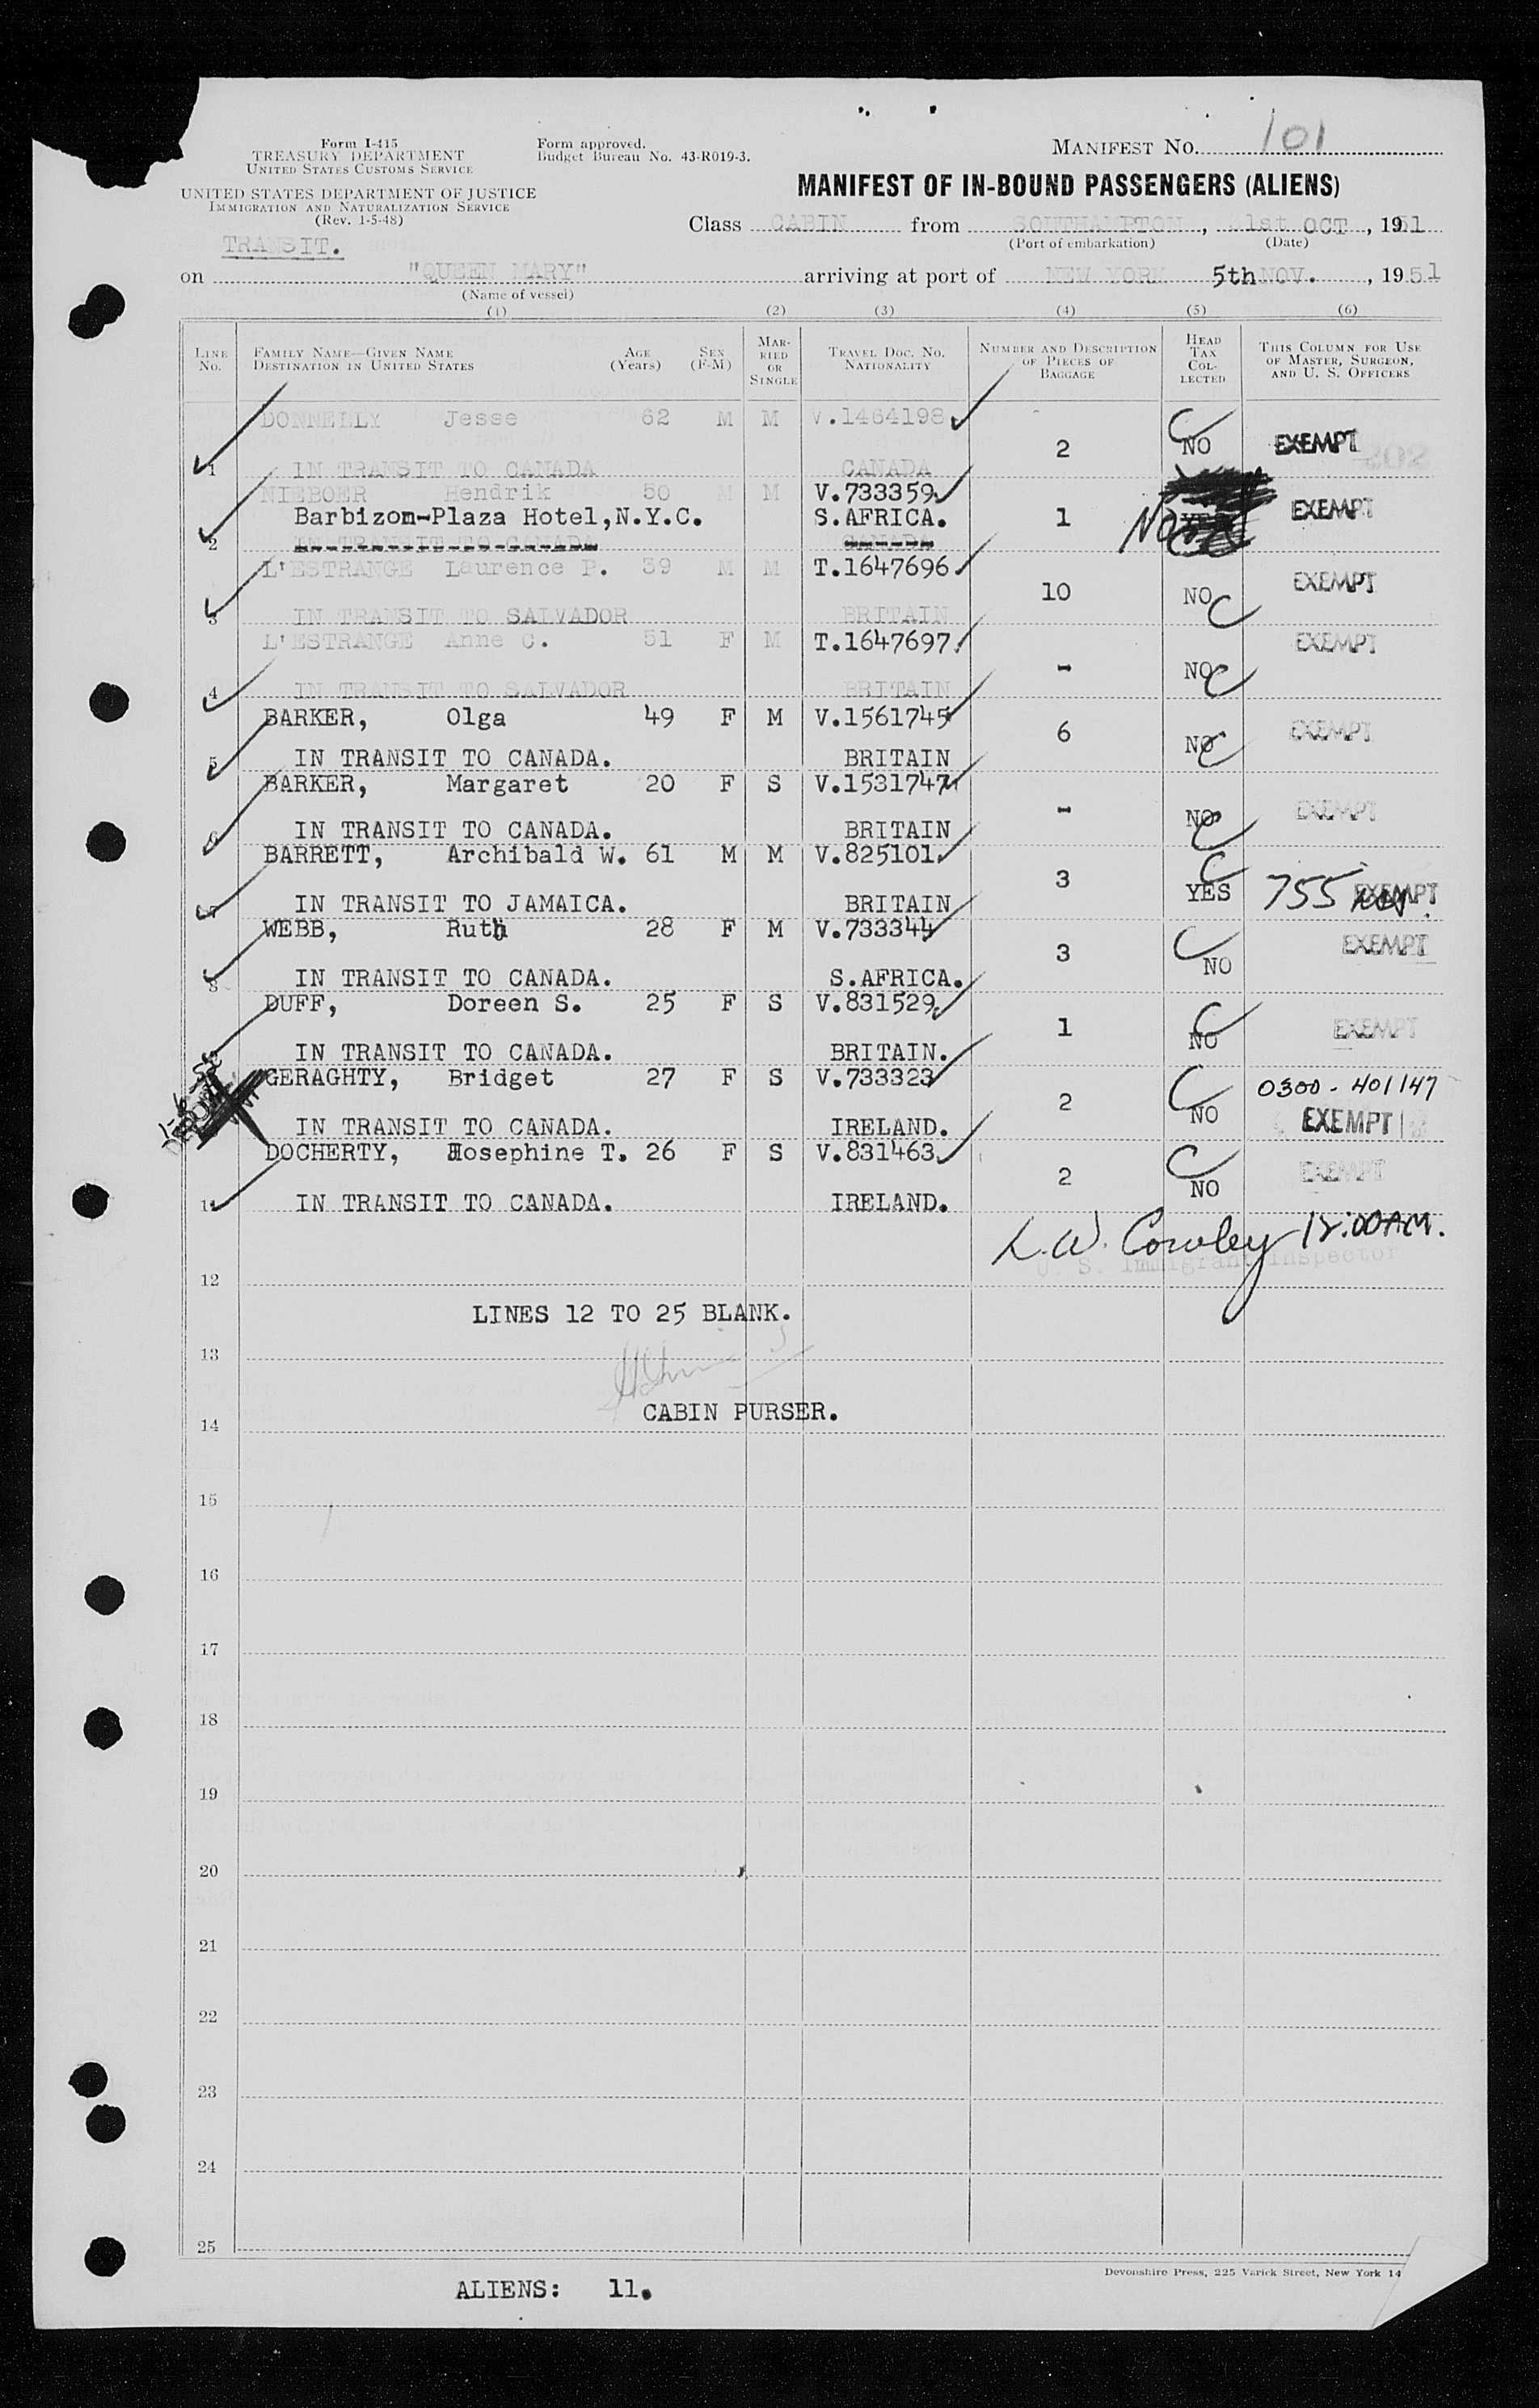 Form I-415
TREASURY DEPARTMENT
UNITED STATES CUSTOMS SERVICE
UNITED STATES DEPARTMENT OF JUSTICE
IMMIGRATION AND NATURALIZATION SERVICE
(Rev. 1-5-48)
Form approved.
Budget Bureau No. 43-R019-3.
MANIFEST NO. 101
MANIFEST OF IN-BOUND PASSENGERS (ALIENS)
Class CABIN from SOUTHAMPTON, 31st OCT, 1951
(Port of embarkation) (Date)
TRANSIT.
on "QUEEN MARY" arriving at port of NEW YORK 5th NOV., 1951
(Name of vessel)
(1) (2) (3) (4) (5) (6)
LINE No. FAMILY NAME—GIVEN NAME DESTINATION IN UNITED STATES AGE (Years) SEX (F-M) MARRIED OR SINGLE TRAVEL DOC. NO. NATIONALITY NUMBER AND DESCRIPTION OF PIECES OF BAGGAGE HEAD TAX COLLECTED THIS COLUMN FOR USE OF MASTER, SURGEON, AND U. S. OFFICERS
DONNELLY Jesse 62 M M V.1464198
1 IN TRANSIT TO CANADA CANADA 2 NO EXEMPT
NIEBOER Hendrik 50 M M V.733359
Barbizon-Plaza Hotel,N.Y.C. S.AFRICA. 1 No EXEMPT
2 IN TRANSIT TO CANADA CANADA
L'ESTRANGE Laurence P. 39 M M T.1647696
3 IN TRANSIT TO SALVADOR BRITAIN 10 NO C EXEMPT
L'ESTRANGE Anne C. 51 F M T.1647697
4 IN TRANSIT TO SALVADOR BRITAIN - NO C EXEMPT
BARKER, Olga 49 F M V.1561745
5 IN TRANSIT TO CANADA. BRITAIN 6 NO C EXEMPT
BARKER, Margaret 20 F S V.1531747
6 IN TRANSIT TO CANADA. BRITAIN - NO C EXEMPT
BARRETT, Archibald W. 61 M M V.825101
7 IN TRANSIT TO JAMAICA. BRITAIN 3 C YES 755 EXEMPT
WEBB, Ruth 28 F M V.733344
8 IN TRANSIT TO CANADA. S.AFRICA. 3 C NO EXEMPT
DUFF, Doreen S. 25 F S V.831529
IN TRANSIT TO CANADA. BRITAIN. 1 C NO EXEMPT
GERAGHTY, Bridget 27 F S V.733323 0300-401147
IN TRANSIT TO CANADA. IRELAND. 2 C NO EXEMPT
DOCHERTY, Josephine T. 26 F S V.831463
11 IN TRANSIT TO CANADA. IRELAND. 2 C NO EXEMPT
L.W. Cowley 12:00AM.
U. S. Immigrant Inspector
12
LINES 12 TO 25 BLANK.
13
CABIN PURSER.
14
15
16
17
18
19
20
21
22
23
24
25
Devonshire Press, 225 Varick Street, New York 14
ALIENS: 11.